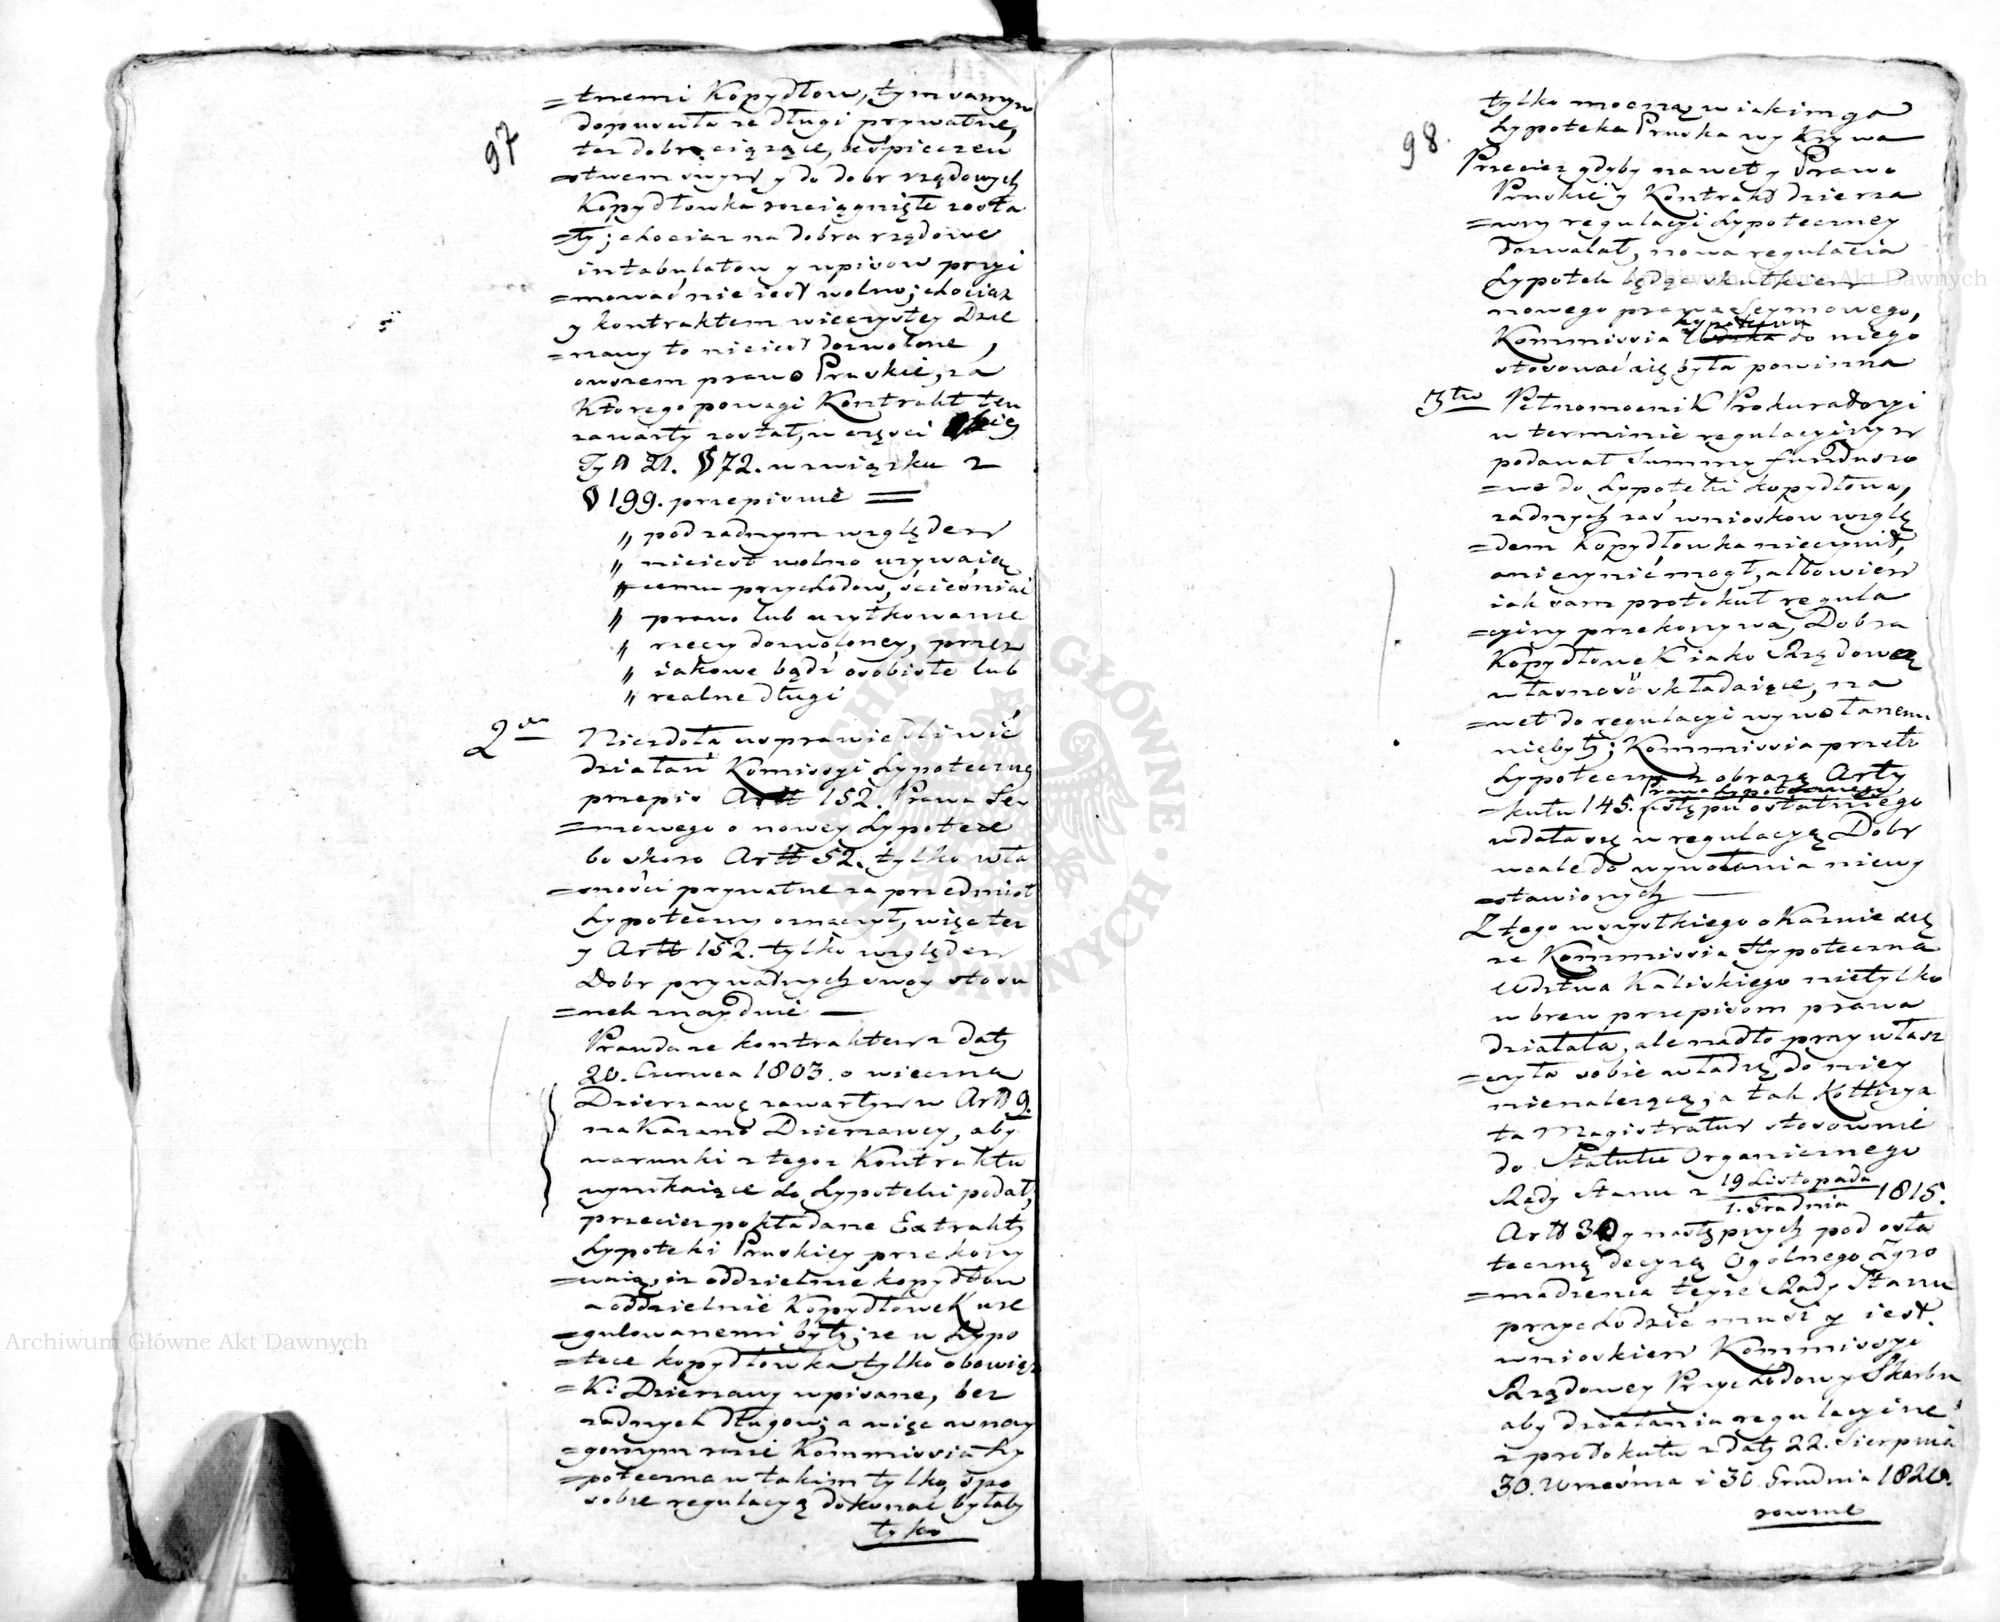 97
=tnemi Kopydłow, tym samym
dopuściła ze długi prywatne,
tez dobra ciążące, bespieczeń
=stwem swym y do dobr rządowych
Kopydłowka rozciągnięte zosta
=ły; chociaz na dobra rządowe
intabulatow y wpisow przyi
=mować nie iest wolno; chociaz
y kontraktem wieczystey Dzie
=rzawy to nieiest dozwolone,
owszem prawo Pruskie, za
Ktorego powagi Kontrakt ten
zawarty został, w częsci
Tyt 21. § 72. w związku z
§ 199. przepisuie =
„ pod zadnym względem
„ nieiest wolno uzywaią
„ cemu przychodow, ścieśniać
„ prawo lub uzytkowanie
„ rzeczy dozwoloney, przez
„ iakowe bądź osobiste lub
„ realne długi
2do Niezdoła usprawiedliwić
działań Komissyi Hypoteczney
przepis Artt 152. Prawa Sey
=mowego o nowey Hypotece
bo skoro Artt 52. tylko wła
=sności prywatne za przedmiot
Hypoteczny oznaczył, więc tez
y Artt 152. tylko względem
Dobr prywatnych swoy stosu
=nek znayduie —
Prawda ze kontraktem z daty
20. Czerwca 1803. o wieczną
Dzierzawę zawartym w Artt 9.
nakazano Dzierzawcy, aby
warunki z tegoz Kontraktu
wynikaiące do Hypoteki podał,
przeciez pokładane Extrakty
Hypoteki Pruskiey przekony
=waią, iz oddzielnie Kopydłow
a oddzielnie Kopydłowek ure
=gulowanemi były; ze w Hypo
=tece Kopydłowka tylko obowiąz
=ki Dzierzawy wpisane, bez
zadnych długow; a więc w nay
=gorszym razie Kommissia Hy
=poteczna w takim tylko spo
sobie regulacyą dokonać byłaby
tylko
98.
tylko mocną w iakim go
Hypoteka Pruska wykrywa
Przeciez gdyby nawet y Prawo
Pruskie y Kontrakt dzierza
=wny regulacyi Hypoteczney
dozwalał, nowa regulacia
Hypotek będąc skutkiem
nowego prawa Seymowego,
Hypoteczna
Kommissia do niego
stosować się była powinna
3tio Pełnomocnik Prokuratoryi
w terminie regulacyinym
podawał Summy funduszo
=we do Hypoteki Kopydłowa,
zadnych zaś wnioskow wzglę
=dem Kopydłowka nieczynił,
ani czynić mogł, albowiem
iak sam protokuł regula
=cyiny przekonywa, Dobra
Kopydłowek iako Rządową
własność składaiące, na
=wet do regulacyi wywołanemi
niebyły; Kommissia przeto
Hypoteczna z obrazą Arty
Prawa Hypotecznego
=kułu 145. ustępu ostatniego
wdała się w regulacyą Dobr
wcale do wywołania niewy
=stawionych —
Z tego wszystkiego okazuie się
ze Kommissia Hypoteczna
Wdztwa Kaliskiego nietylko
wbrew przepisom prawa
działała, ale nadto przywłasz
=czyła sobie władzę do niey
nienalezącą; a tak Kollizya
ta Magistratur stosownie
do Statutu Organicznego
Rady Stanu z 19 Listopada / 1. Grudnia 1815.
Artt 30 y następnych pod osta
teczną decyzą Ogolnego Zgro
=madzenia teyze Rady Stanu
przychodzić musi y iest
wnioskiem Kommissyi
Rządowey Przychodow y Skarbu
aby działania regulacyine
z protokułu z daty 22. Sierpnia
30. Września i 30. Grudnia 1820.
rownie
Archiwum Główne Akt Dawnych
Archiwum Główne Akt Dawnych
ARCHIWUM GŁÓWNE AKT DAWNYCH